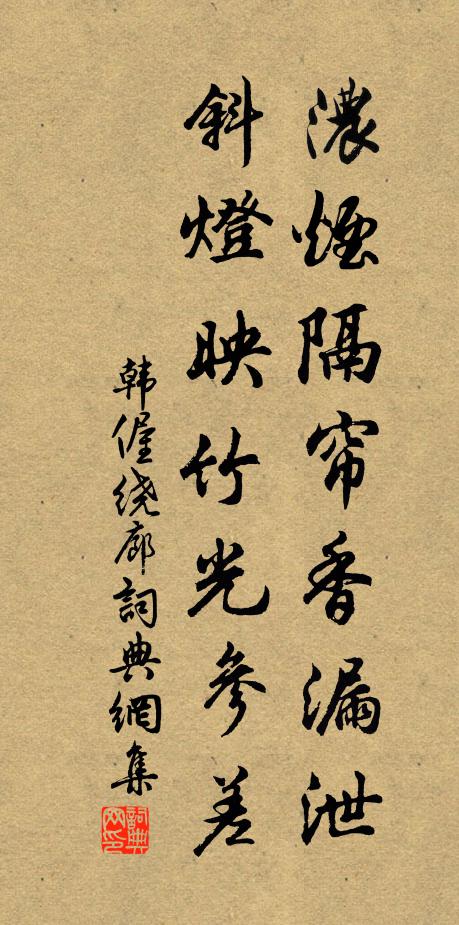 濃煙隔帘香漏泄
斜燈映竹光參差
韩偓绕廊詞典網集
詞典网印